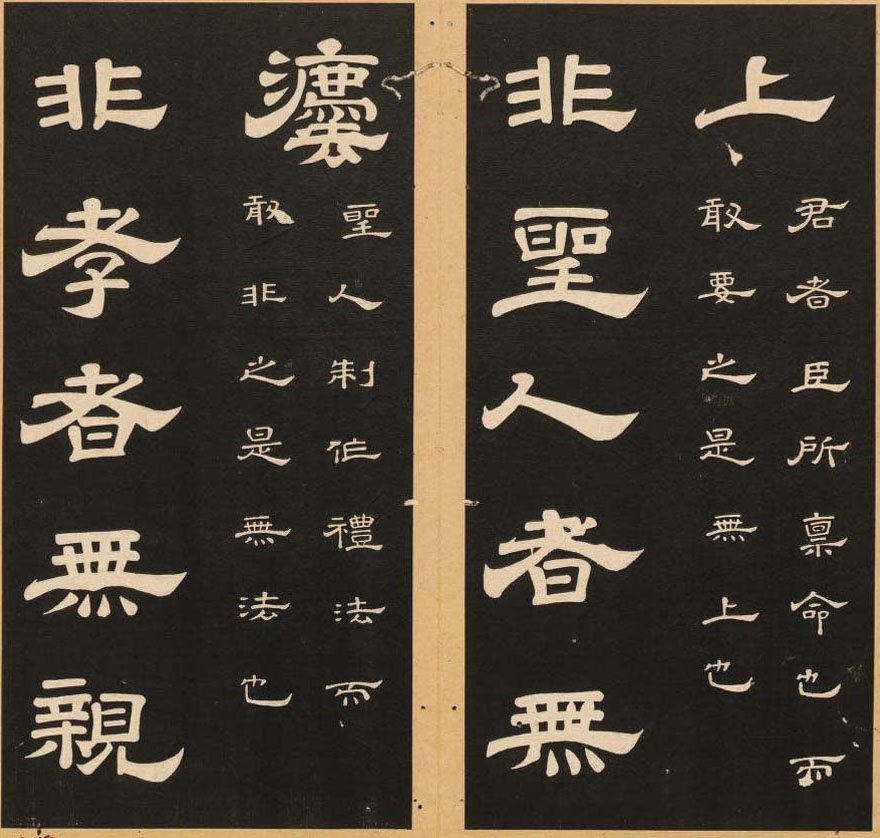 上
君者臣所禀命也而
敢要之是無上也
非聖人者無
灋
聖人制作禮法而
敢非之是無法也
非孝者無親